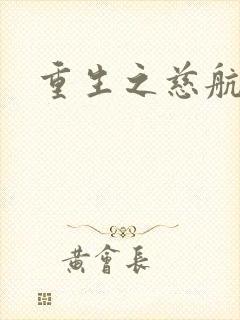 重生之慈航
黄會長